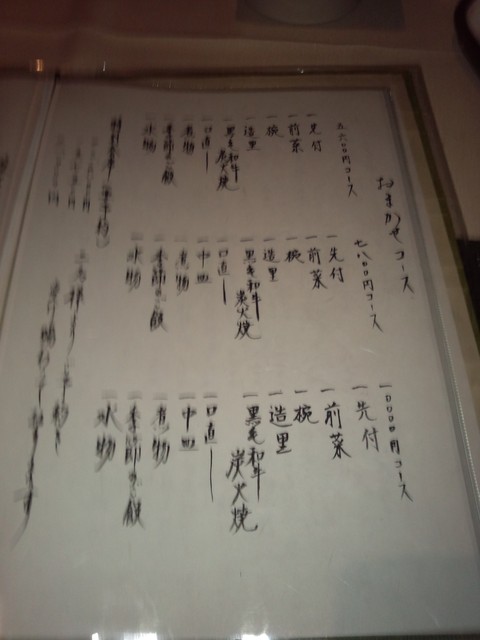 おまかせコース
五六〇〇円コース
一 先付
一 前菜
一 椀
一 造里
一 黒毛和牛炭火焼
一 口直し
一 煮物
一 季節のご飯
一 水物
七八〇〇円コース
一 先付
一 前菜
一 椀
一 造里
一 黒毛和牛炭火焼
一 口直し
一 中皿
一 煮物
一 季節のご飯
一 水物
一〇〇〇〇円コース
一 先付
一 前菜
一 椀
一 造里
一 黒毛和牛炭火焼
一 口直し
一 中皿
一 煮物
一 季節のご飯
一 水物